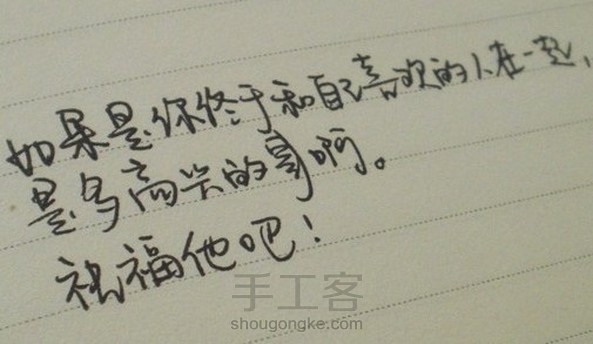 如果是你终于和自己喜欢的人在一起，
是多高兴的事啊。
祝福他吧！
手工客
shougongke.com